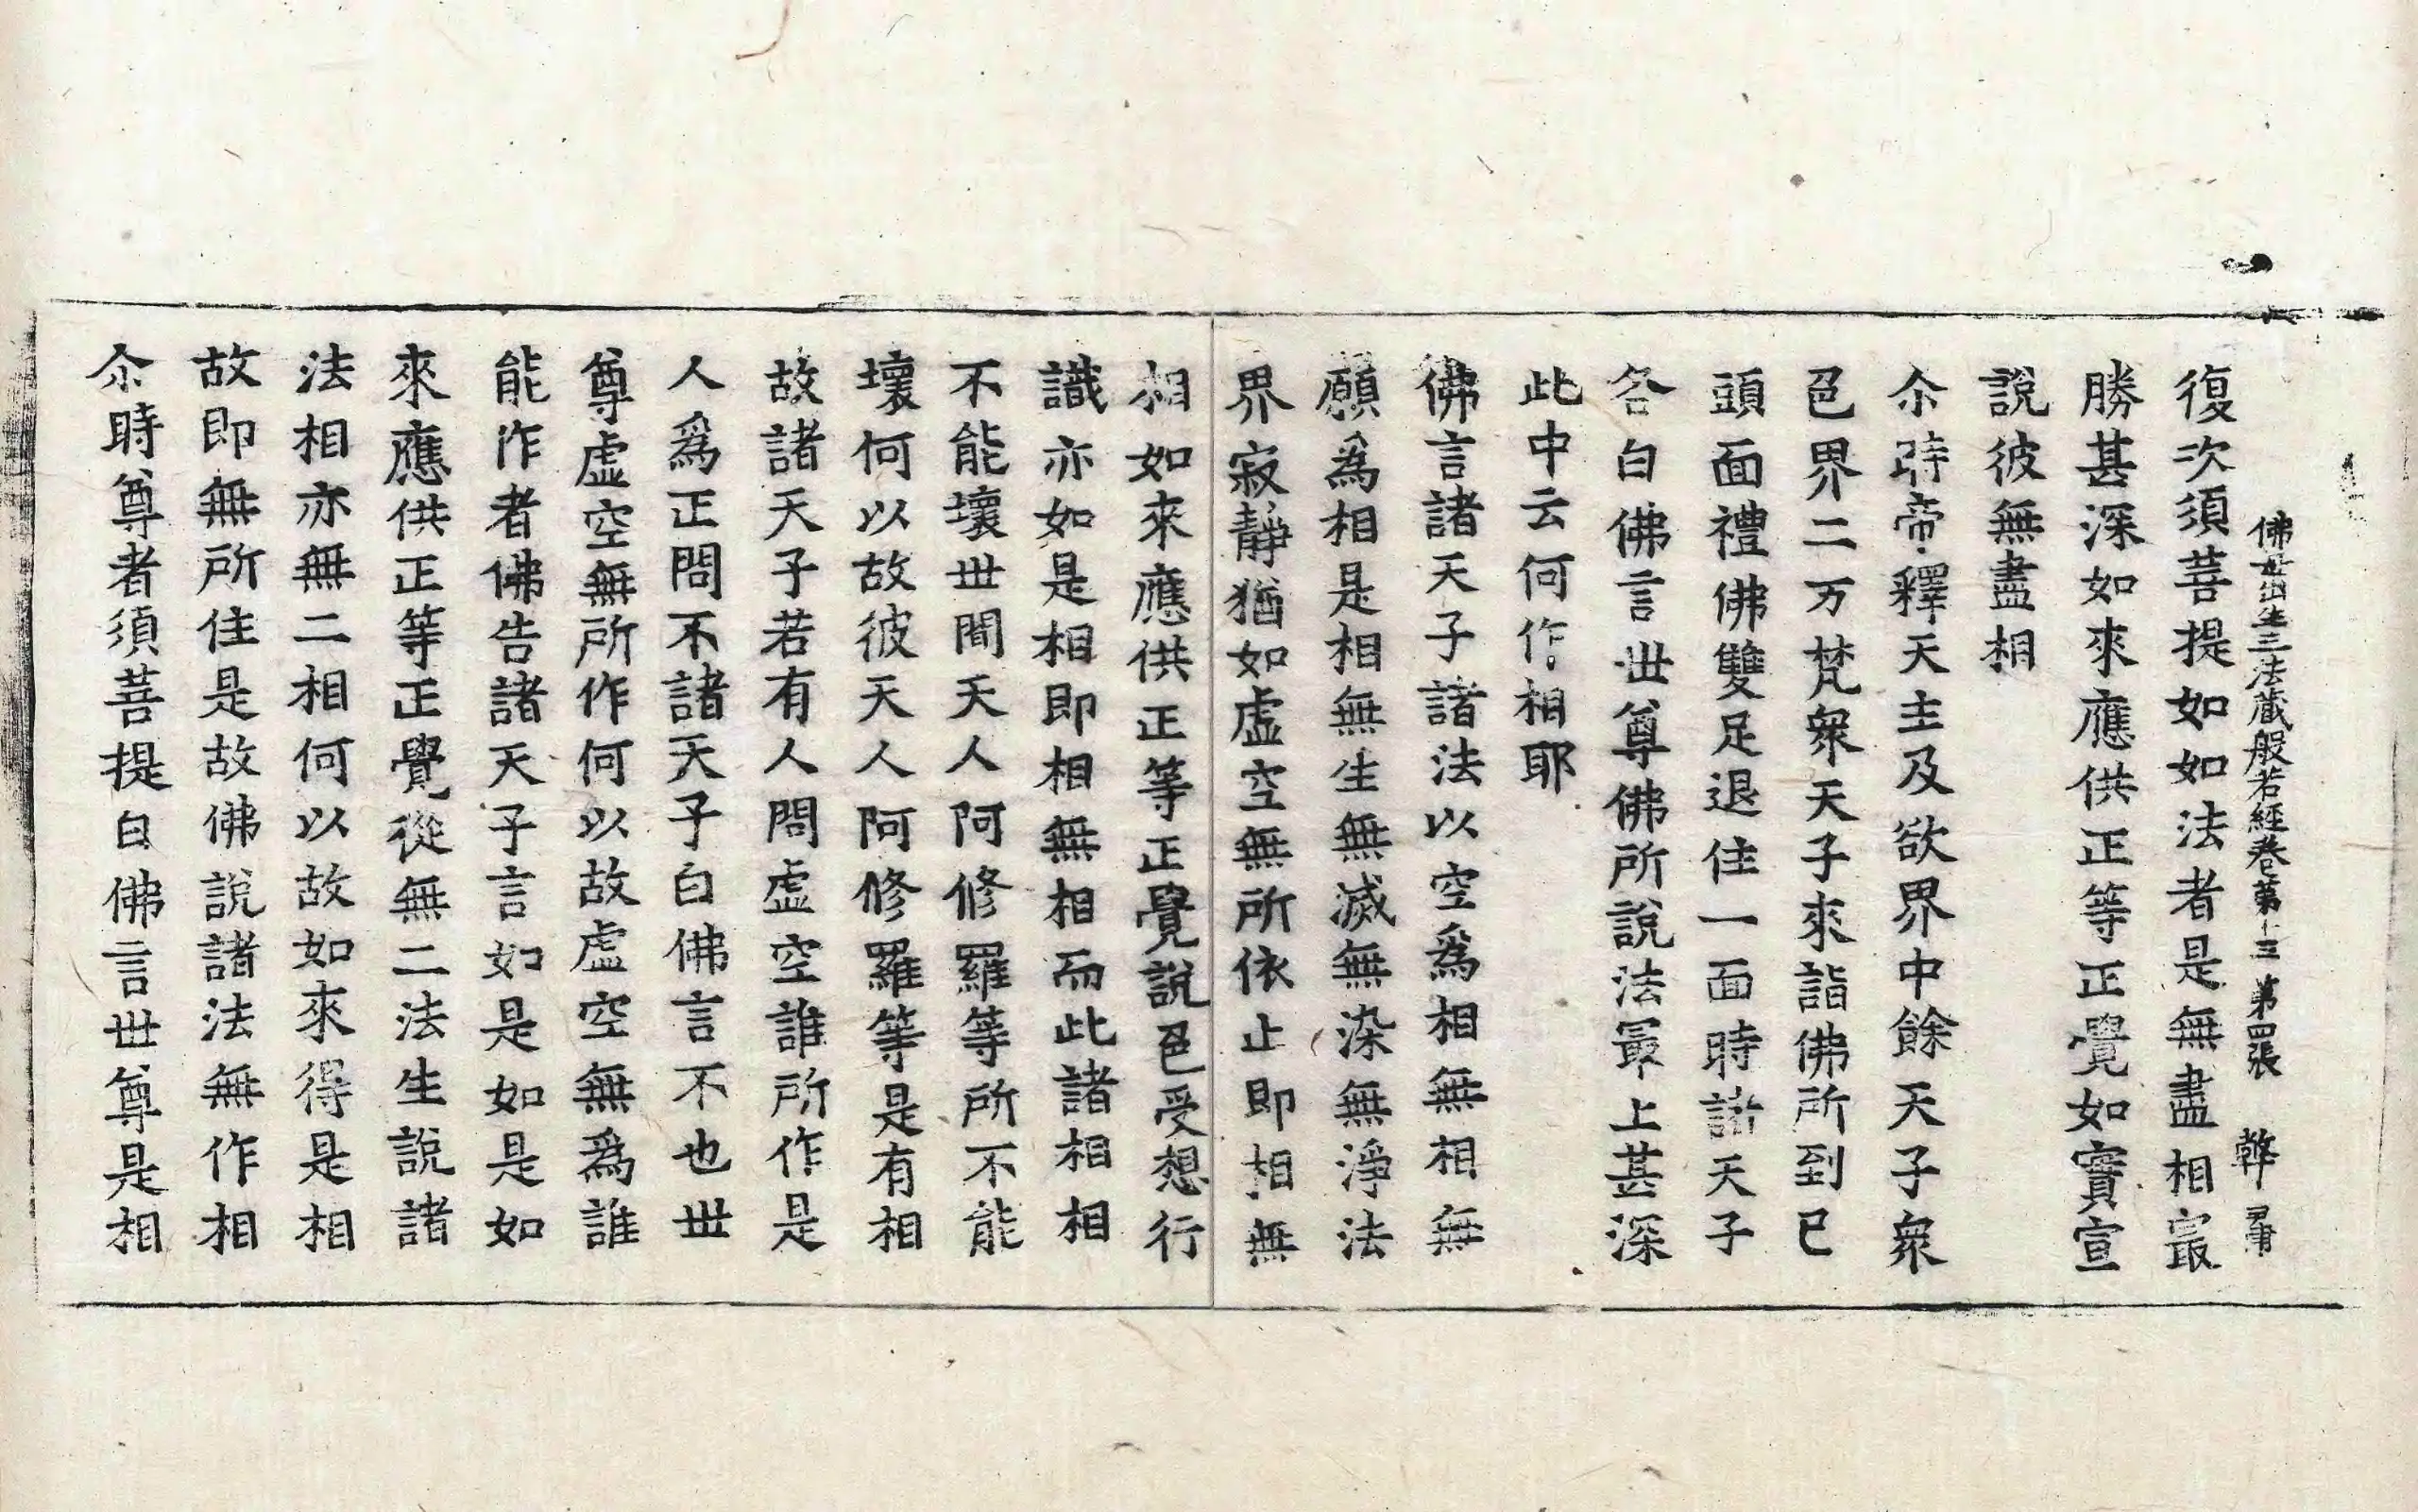 佛母出生三法藏般若經卷第十三 第四張 韓
復次須菩提如如法者是無盡相㝡
勝甚深如來應供正等正覺如實宣
說彼無盡相
尒時帝釋天主及欲界中餘天子衆
色界二万梵衆天子來詣佛所到已
頭面禮佛雙足退住一面時諸天子
各白佛言世尊佛所說法㝡上甚深
此中云何作相耶
佛言諸天子諸法以空爲相無相無
願爲相是相無生無滅無染無淨法
界寂靜猶如虛空無所依止即相無
相如來應供正等正覺說色受想行
識亦如是相即相無相而此諸相相
不能壞世間天人阿修羅等所不能
壞何以故彼天人阿修羅等是有相
故諸天子若有人問虛空誰所作是
人爲正問不諸天子白佛言不也世
尊虛空無所作何以故虛空無爲誰
能作者佛告諸天子言如是如是如
來應供正等正覺從無二法生說諸
法相亦無二相何以故如來得是相
故即無所住是故佛說諸法無作相
尒時尊者須菩提白佛言世尊是相